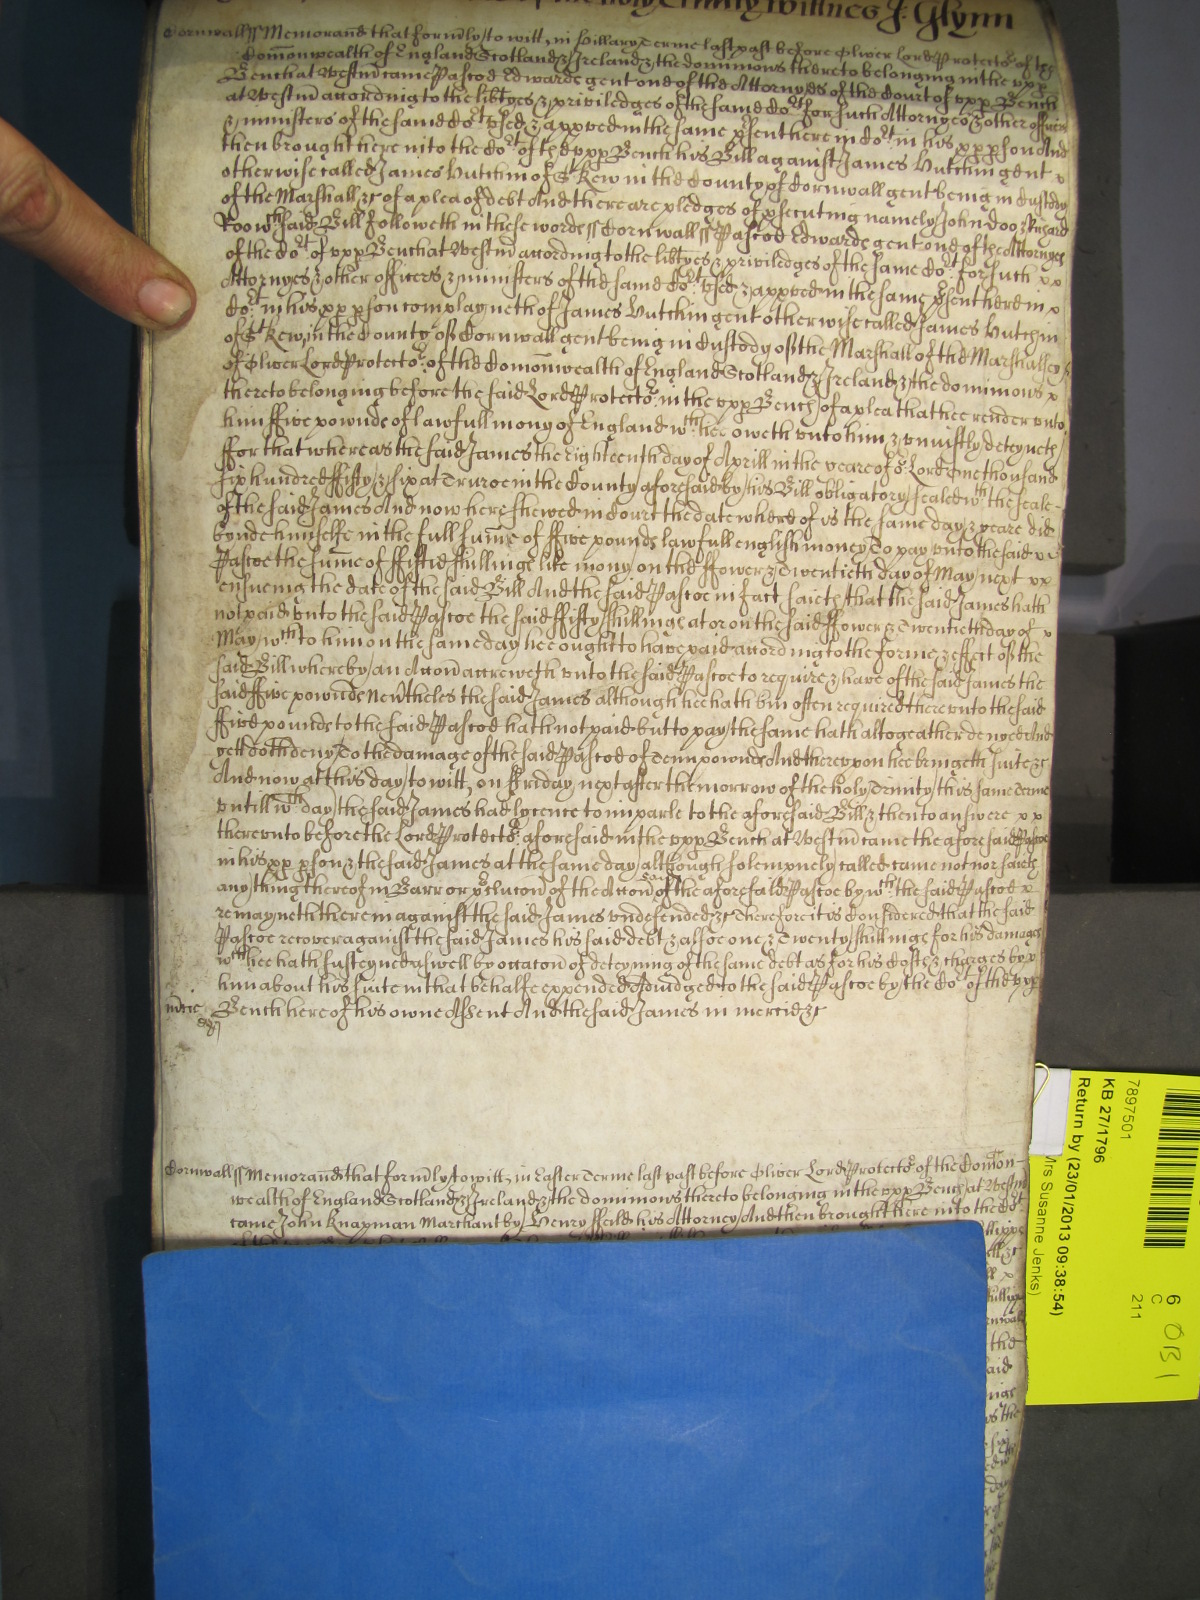 the holy Trinity Wittnes J: Glynn
Cornwall ss Memorand that form̄ly to witt, in Hillary Terme last past before Oliver Lord Protector of the
Com̄onwealth of England Scotland & Ireland & the dominions thereto belonging in the vpp
Bench at Westm̄ came Pascoe Edwards gent one of the Attornyes of the Court of vpp Bench
at Westm̄ according to the lib̄tyes & priviledges of the same Cot for such Attornyes & other officers
& ministers of the same Cot vsed & app̄ved in the same p̄sent here in Cot in his pp p̄son And
then brought here into the Cot of the vpp Bench his Bill against James Hutchin gent
otherwise called James Hutchin of St Kew in the County of Cornwall gent being in Custody
of the Marshall &c of a plea of debt And there are pledges of p̄secuting namely John Doo & Richard
Roo wch said Bill followeth in these words ss Cornwall ss Pascoe Edwards gent one of the Attornyes
of the Cot of vpp Bench at Westm̄ according to the lib̄tyes & priviledges of the same Cot for such
Attornyes & other officers & ministers of the same Cot vsed & app̄ved in the same p̄sent here in
Cot in his pp p̄son complayneth of James Hutchin gent otherwise called James Hutchin
of St Kew, in the County of Cornwall gent being in Custody of the Marshall of the Marshalsey
of Oliver Lord Protector of the Com̄onwealth of England Scotland & Ireland & the dominions
thereto belonging before the said Lord Protector in the vpp Bench of a plea that hee render vnto
him ffive pownds of lawfull mony of England wch hee oweth vnto him & vniustly deteyneth
ffor that whereas the said James the Eighteenth day of Aprill in the yeare of or Lord One thousand
six hundred ffifty & six at Truroe in the County aforesaid by his Bill obligatory sealed wth the seale
of the said James And now here shewed in Court the date whereof is the same day & yeare did
bynde himselfe in the full sum̄e of ffive pounds lawfull english money To pay vnto the said
Pascoe the sum̄e of ffiftie shillings like mony on the ffower & Twentieth day of May next
ensueing the date of the said Bill And the said Pascoe in fact saieth that the said James hath
not paid vnto the said Pascoe the said ffifty shillings at or on the said ffower & Twentieth day of
May wch to him on the same day hee ought to have paid according to the forme & effect of the
said Bill whereby an Accon̄ accreweth vnto the said Pascoe to require & have of the said James the
said ffive pownds Nev̄theles the said James although hee hath bin often required there vnto the said
ffive pounds to the said Pascoe hath not paid but to pay the same hath altogeather denyed And
yett doth deny To the damage of the said Pascoe of Tenn pownds And therevpon hee bringeth suite &c
And now at this day to witt, on Friday next after the morrow of the holy Trinity this same Terme
vntill wch day the said James had lycence to imparle to the aforesaid Bill & then to answere
therevnto before the Lord Protector aforesaid in the vpp Bench at Westm̄ came the aforesaid Pascoe
in his pp p̄son & the said James at the same day although solempnely called came not nor saieth
any thing thereof in Barr or p̄clucon̄ of the Accon̄ of the aforesaid Pascoe by wch the said Pascoe
remayneth therein against the said James vndefended &c Therefore it is Considered that the said
Pascoe recover against the said James his said debt & alsoe one & Twenty shillings for his damages
wch hee hath susteyned aswell by occacon̄ of deteyning of the same debt as for his Costs & charges by
him about his suite in that behalfe expended Adiudged to the said Pascoe by the Cot of the vpp
m̄cie Bench here of his owne Assent And the said James in mercie &c
Cornwall ss Memorand that form̄ly to witt, in Easter Terme last past before Oliver Lord Protector of the Com̄on-
wealth of England Scotland & Ireland & the dominions thereto belonging in the vpp Bench at Westm̄
came John Knapman Marchant by Henry ffeild his Attorney And then brought here into the Cot
7897501
KB 27/1796
Return by (23/01/2013 09:38:54)
Mrs Susanne Jenks)
6
C
211
OB 1